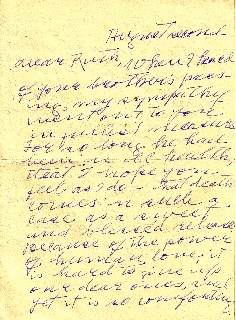 August second
Dear Ruth, When I heard
of your brother's pass-
ing, my sympathy
went out to you
in fullest measure
For so long he had
been in ill health,
that I hope you
feel as I do - that death
comes in such a
case as a sweet
and blessed release
because of the power
of human love, it
is hard to give up
our dear ones, and
yet it is so comforting